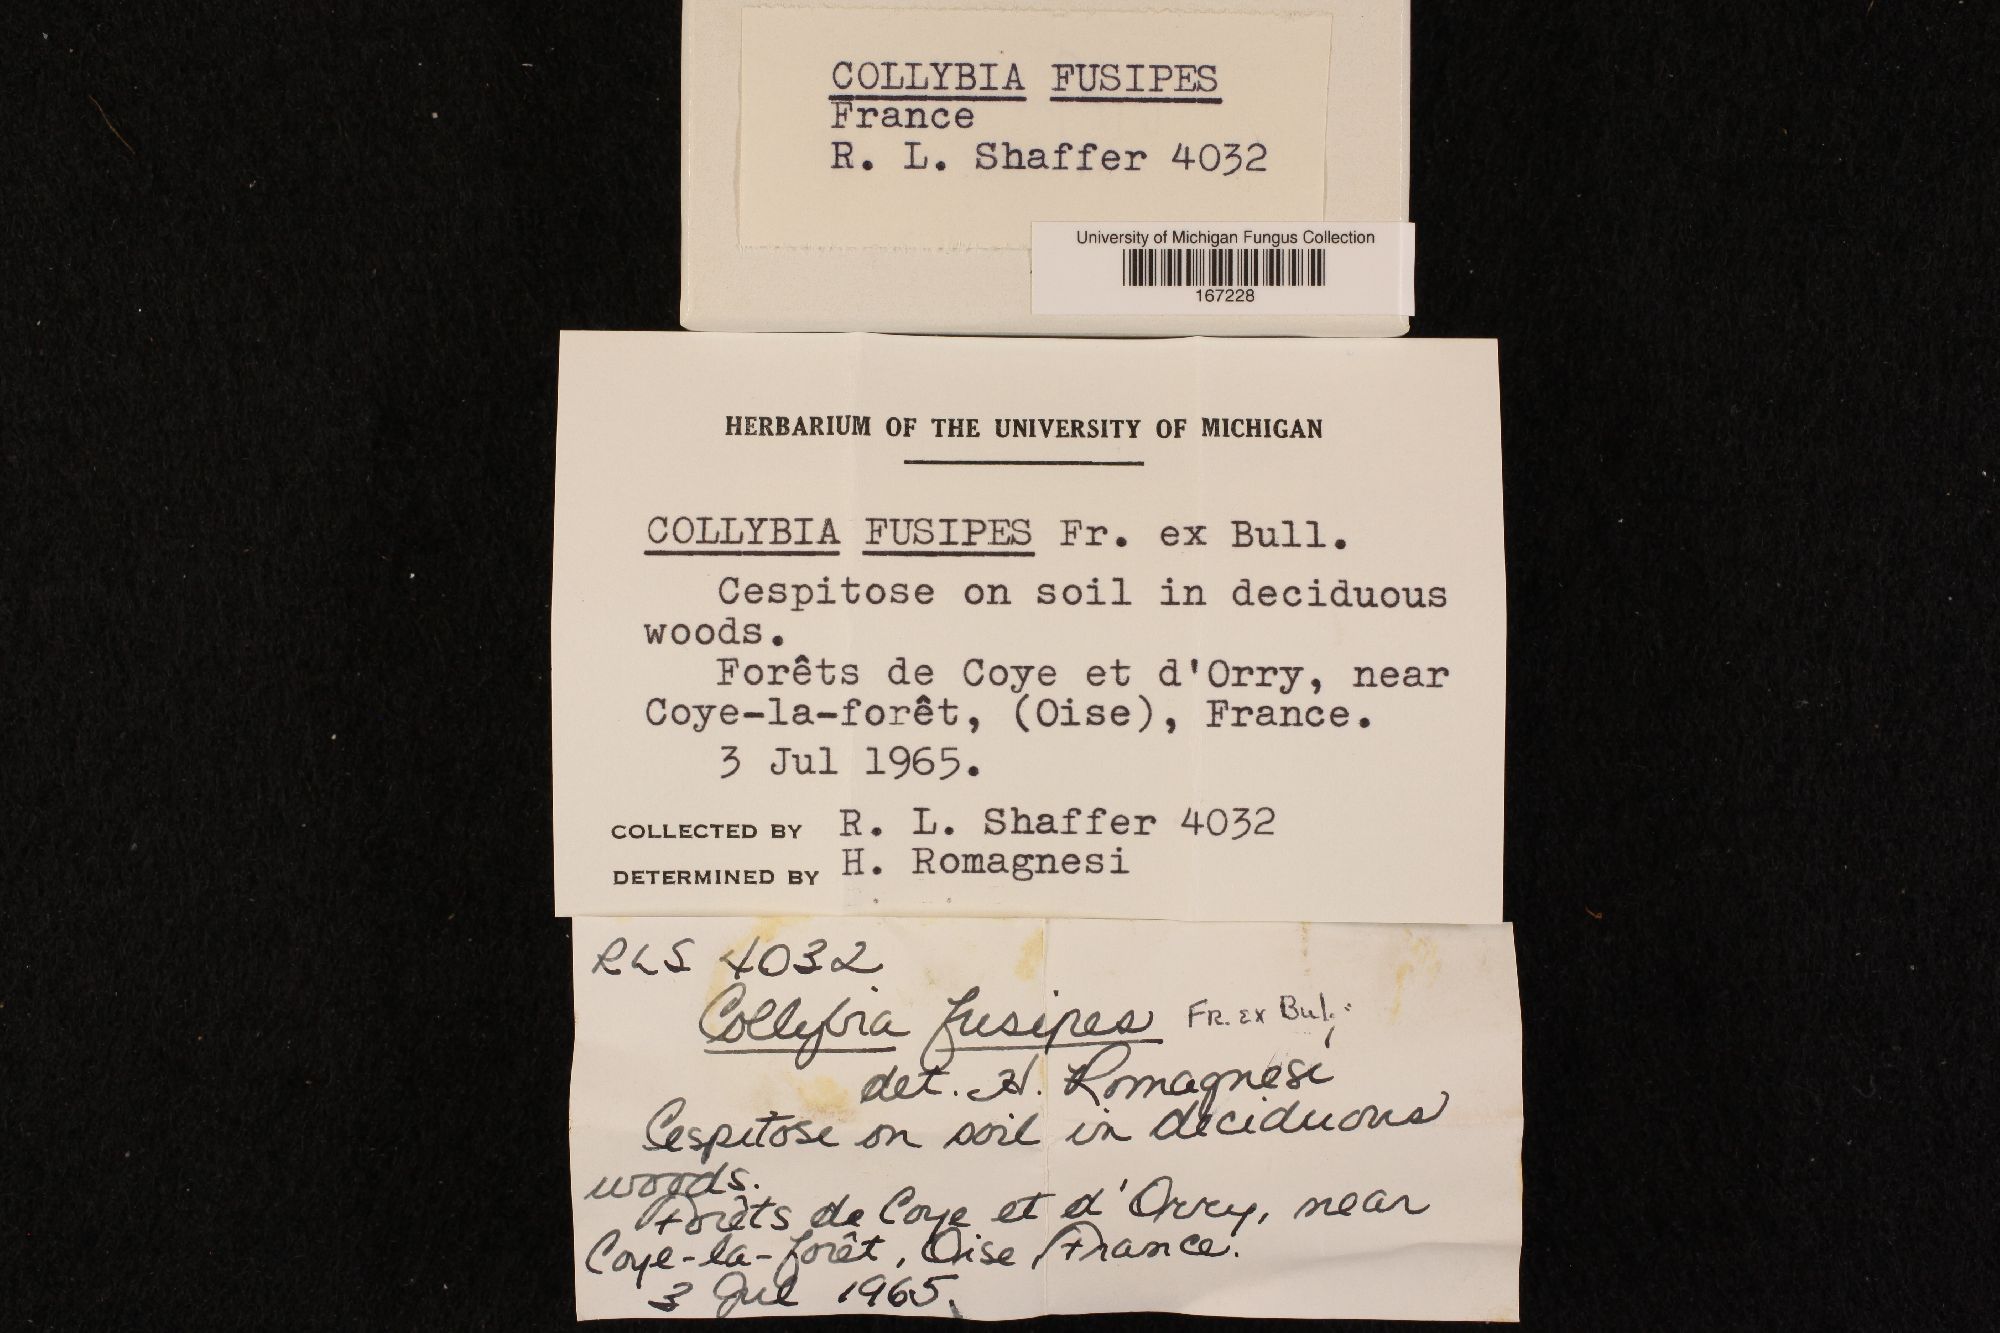 COLLYBIA FUSIPES
France
R. L. Shaffer 4032
University of Michigan Fungus Collection
167228
HERBARIUM OF THE UNIVERSITY OF MICHIGAN
COLLYBIA FUSIPES Fr. ex Bull.
Cespitose on soil in deciduous
woods.
Forêts de Coye et d'Orry, near
Coye-la-forêt, (Oise), France.
3 Jul 1965.
COLLECTED BY R. L. Shaffer 4032
DETERMINED BY H. Romagnesi
RLS 4032
Collybia fusipes FR. EX Bul.
det. H. Romagnesi
Cespitose on soil in deciduous
woods.
Forêts de Coye et d'Orry, near
Coye-la-forêt, Oise, France.
3 Jul 1965.